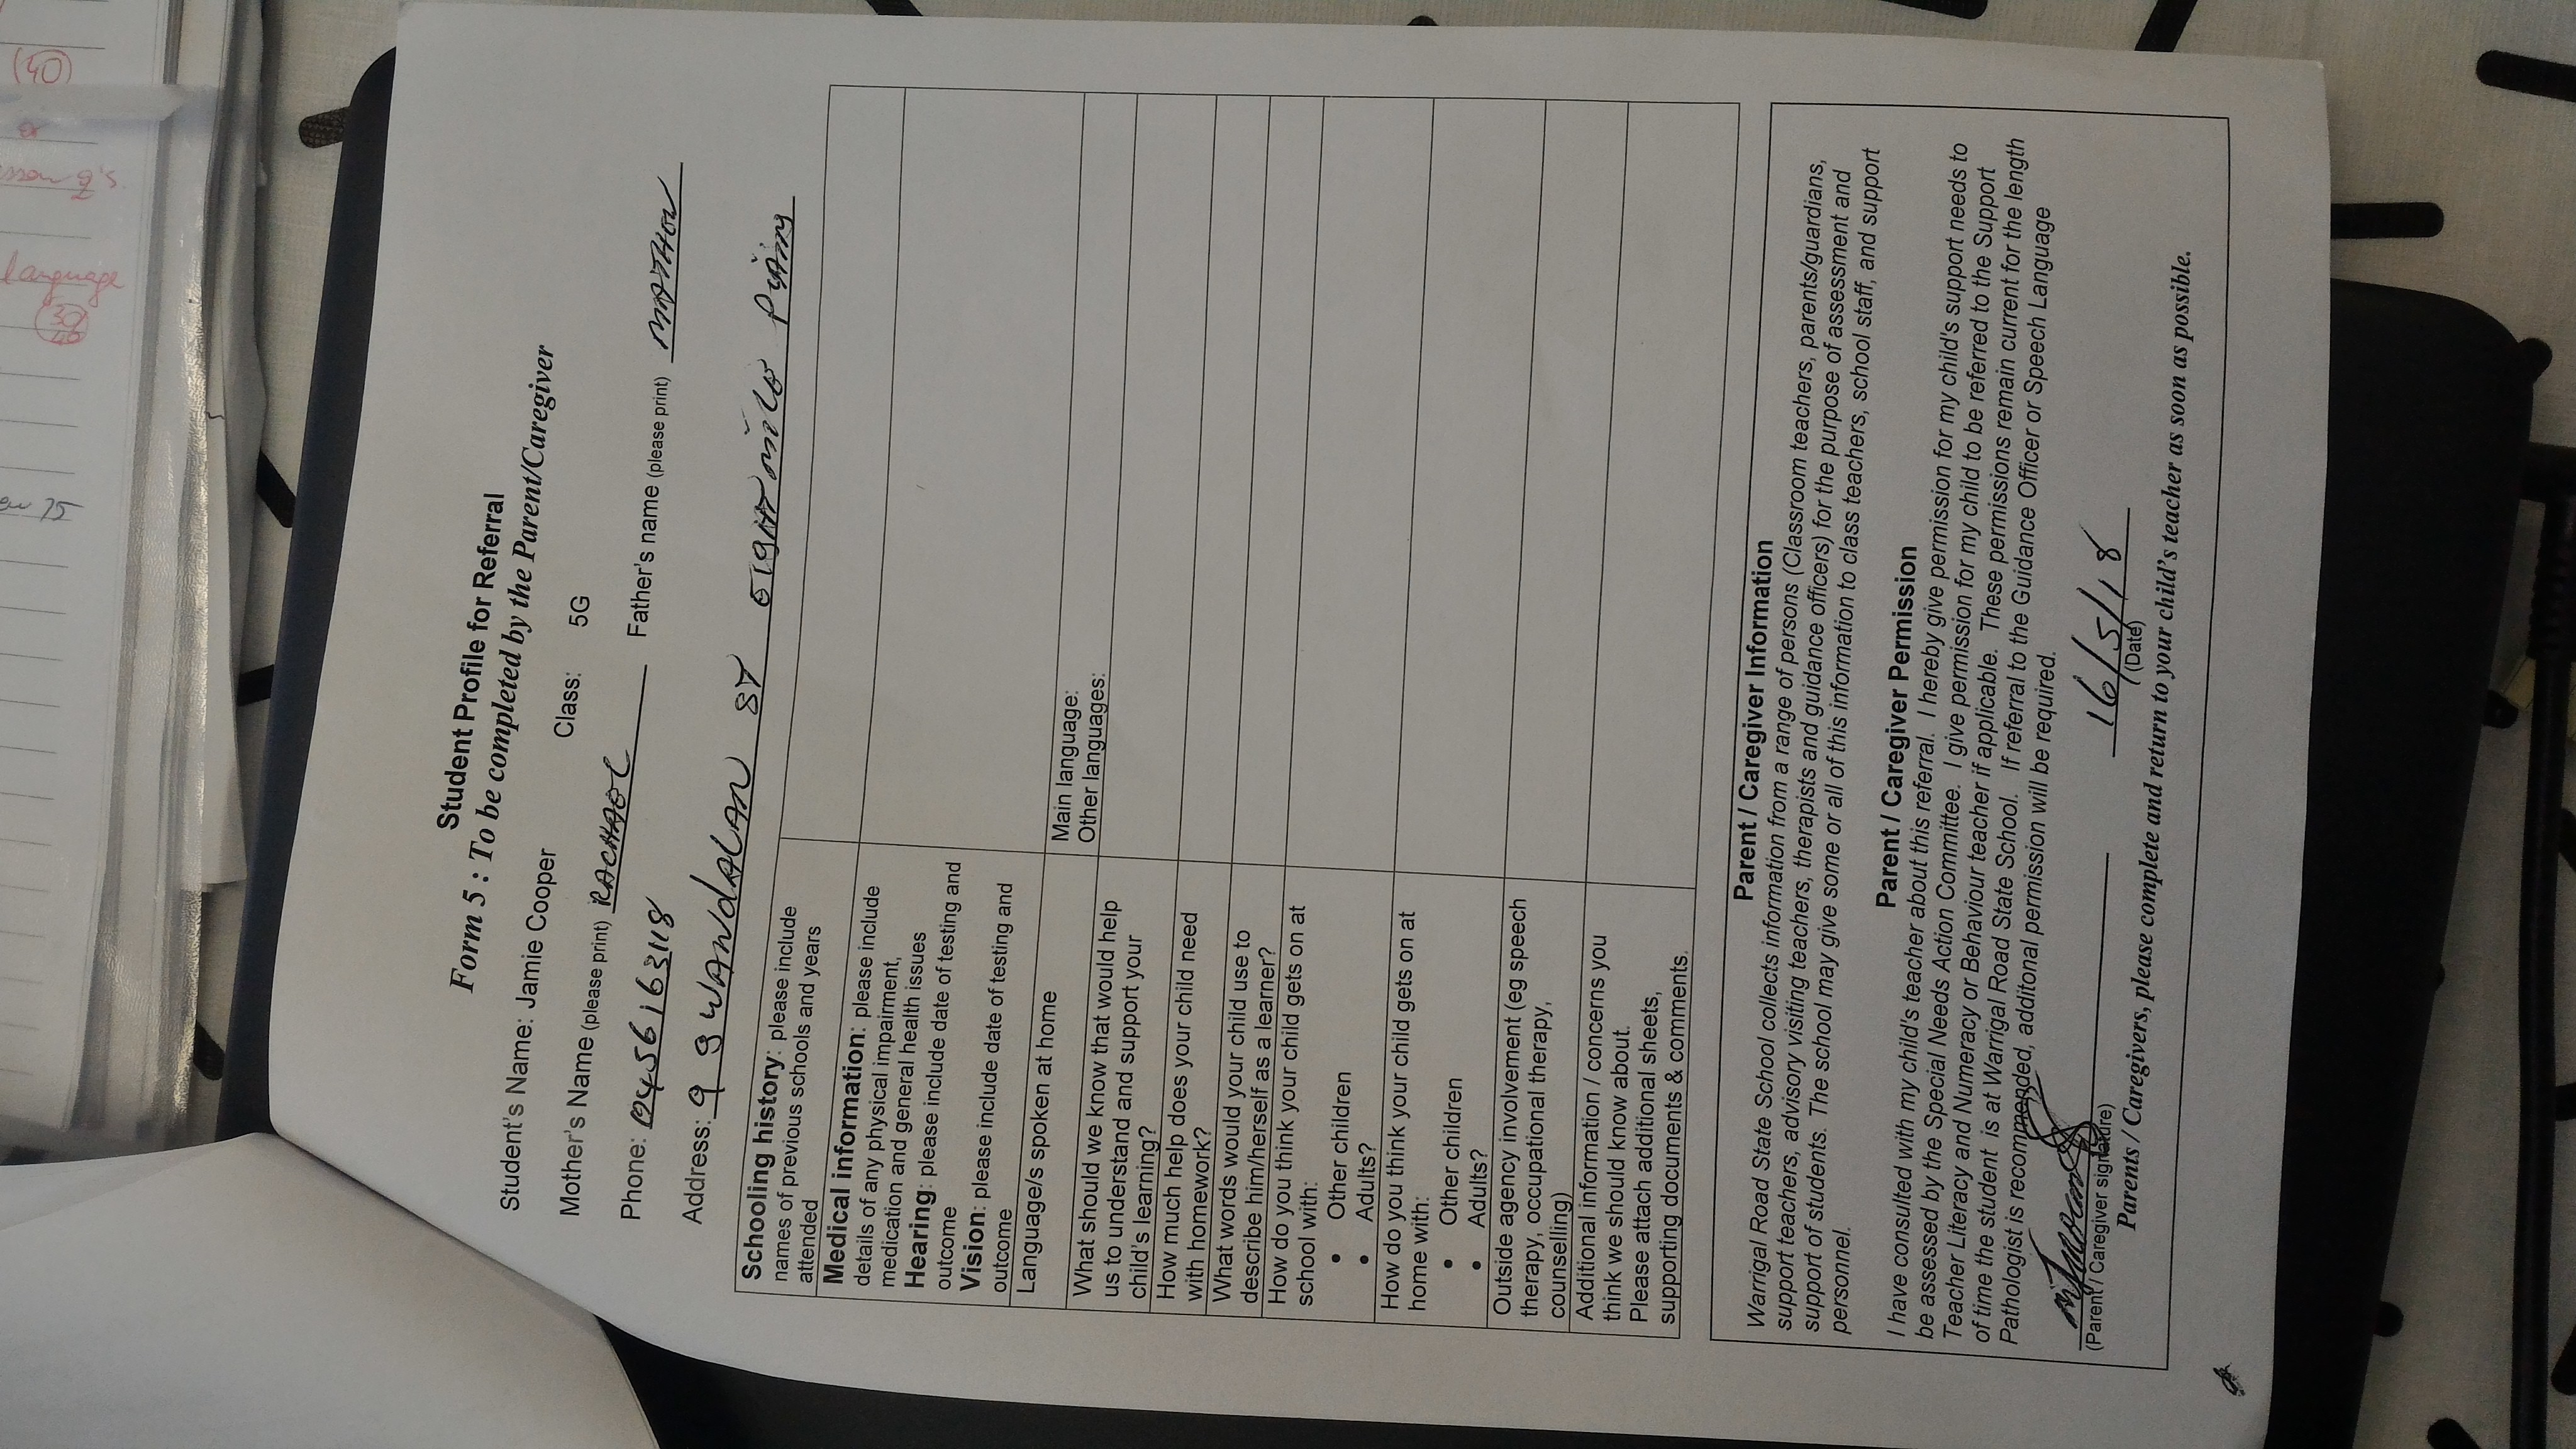 (40)
language
30
40
Student Profile for Referral
Form 5 : To be completed by the Parent/Caregiver
Student's Name: Jamie Cooper Class: 5G
Mother's Name (please print) RACHAEL Father's name (please print) MATHEW
Phone: 0456163118
Address: 9 GWANDALAN ST EIGHT MILE PLAINS
Schooling history: please include
names of previous schools and years
attended
Medical information: please include
details of any physical impairment,
medication and general health issues
Hearing: please include date of testing and
outcome
Vision: please include date of testing and
outcome
Language/s spoken at home
Main language:
Other languages:
What should we know that would help
us to understand and support your
child's learning?
How much help does your child need
with homework?
What words would your child use to
describe him/herself as a learner?
How do you think your child gets on at
school with:
• Other children
• Adults?
How do you think your child gets on at
home with:
• Other children
• Adults?
Outside agency involvement (eg speech
therapy, occupational therapy,
counselling)
Additional information / concerns you
think we should know about.
Please attach additional sheets,
supporting documents & comments.
Parent / Caregiver Information
Warrigal Road State School collects information from a range of persons (Classroom teachers, parents/guardians,
support teachers, advisory visiting teachers, therapists and guidance officers) for the purpose of assessment and
support of students. The school may give some or all of this information to class teachers, school staff, and support
personnel.
Parent / Caregiver Permission
I have consulted with my child's teacher about this referral. I hereby give permission for my child's support needs to
be assessed by the Special Needs Action Committee. I give permission for my child to be referred to the Support
Teacher Literacy and Numeracy or Behaviour teacher if applicable. These permissions remain current for the length
of time the student is at Warrigal Road State School. If referral to the Guidance Officer or Speech Language
Pathologist is recommended, additonal permission will be required.
16/5/18
(Parent / Caregiver signature) (Date)
Parents / Caregivers, please complete and return to your child's teacher as soon as possible.